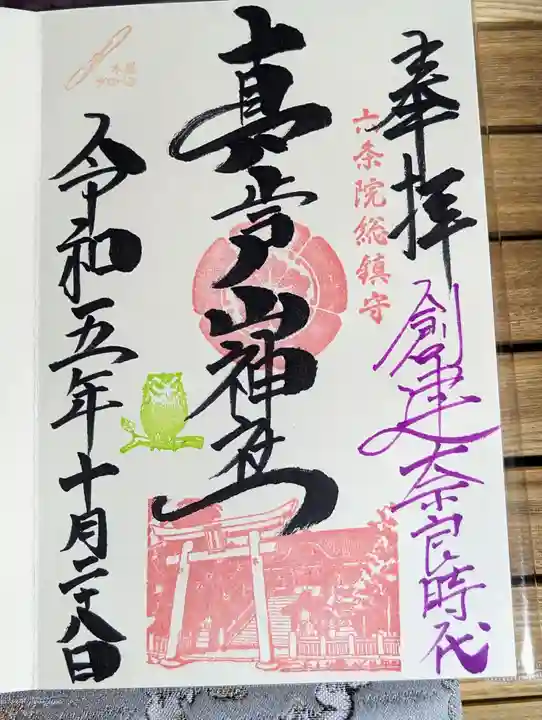 奉拝
創建奈良時代
六条院総鎮守
真止戸山神社
令和五年十月二十八日